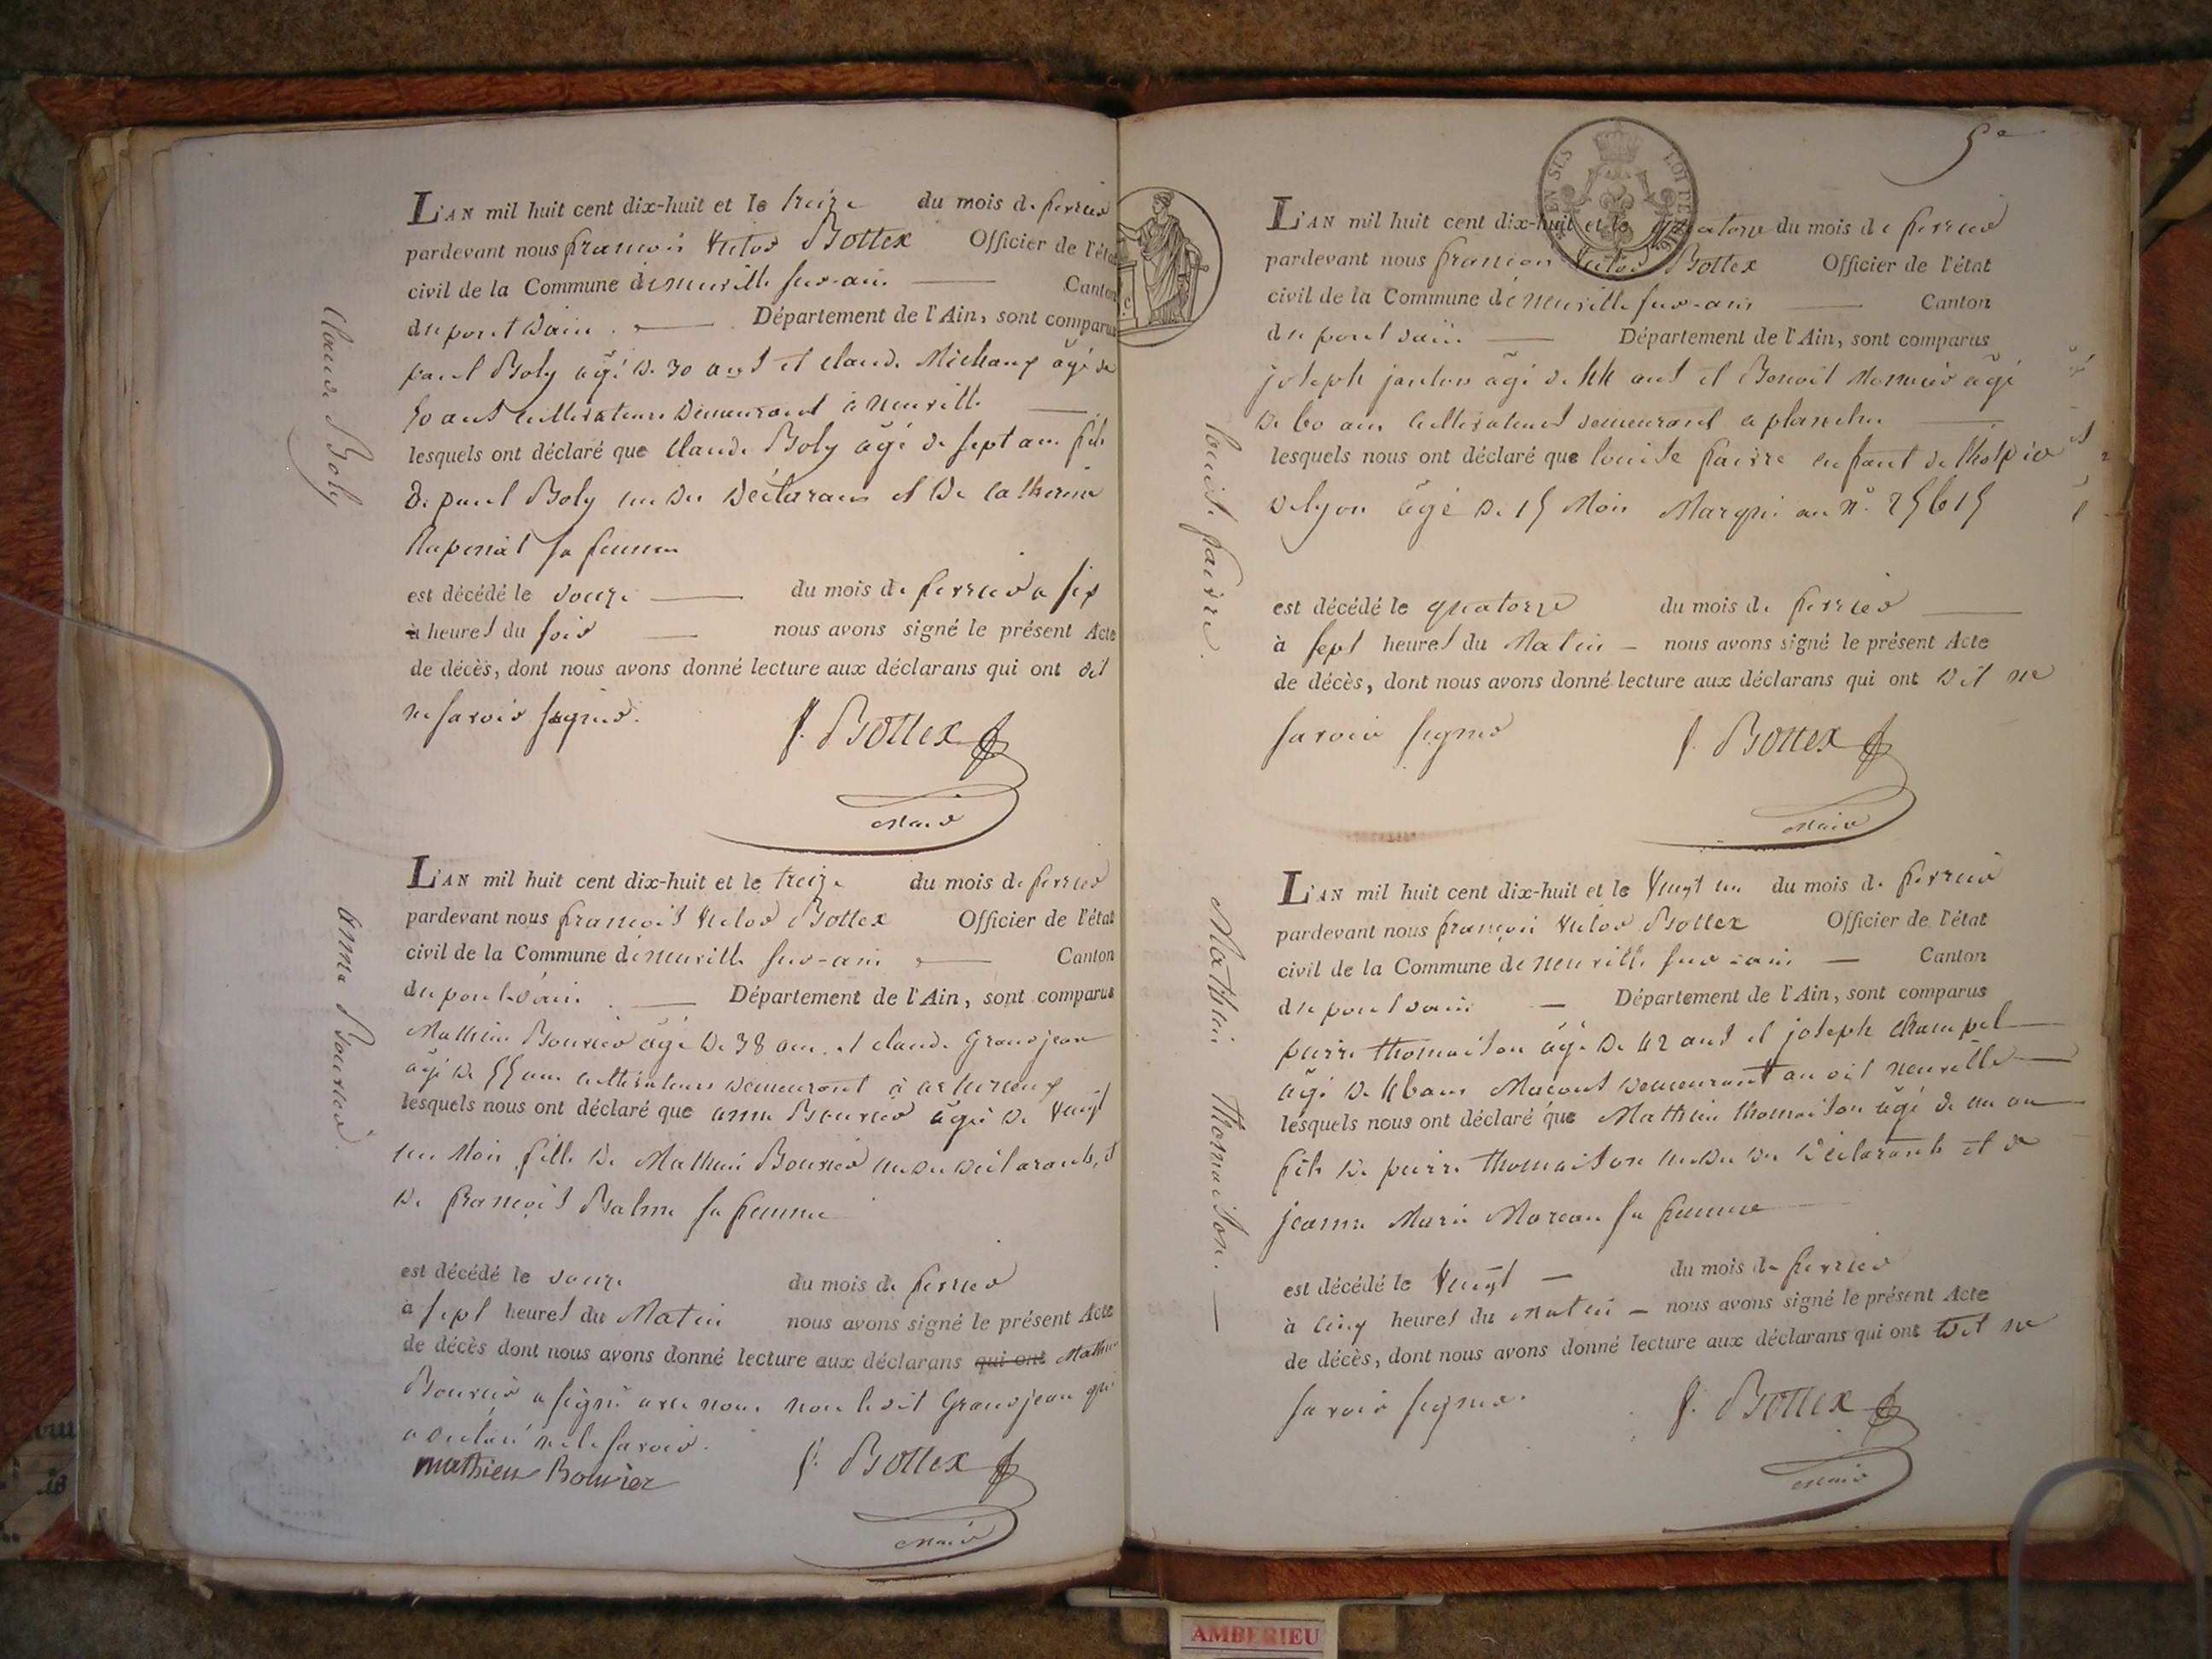 Claude Boly
L'AN mil huit cent dix-huit et le treize du mois de fevrier
pardevant nous francois Victor Bottex Officier de l'état
civil de la Commune de neuville sur-ain Canton
du pont dain Département de l'Ain, sont comparus
paul Boly agé de 30 ans et claude Michaux agé de
50 ans cultivateurs demeurant a neuville
lesquels ont déclaré que Claude Boly agé de sept ans fils
de paul Boly un des déclarans et de catherine
sa femme
est décédé le douze du mois de fevrier a six
à heures du soir nous avons signé le présent Acte
de décès, dont nous avons donné lecture aux déclarans qui ont dit
ne savoir signer.
f. Bottex
Maire
anne Bouvier.
L'AN mil huit cent dix-huit et le treize du mois de fevrier
pardevant nous francois Victor Bottex Officier de l'état
civil de la Commune de neuville sur-ain Canton
du pont-dain Département de l'Ain, sont comparus
Mathieu Bouvier agé de 38 ans et claude Grandjean
agé de 55 ans cultivateurs demeurant à
lesquels nous ont déclaré que anne Bouvier agée de vingt
un Mois fille de Mathieu Bouvier un des déclarants, et
de francois Balme sa femme
est décédé le douze du mois de fevrier
à sept heures du Matin nous avons signé le présent Acte
de décès dont nous avons donné lecture aux déclarans qui ont Mathieu
Bouvier a signé avec nous non ledit Grandjean qui
a déclaré ne le savoir.
mathieu Bouvier
f. Bottex
Maire
5e
EN SUS LOI DE 1816
louise faivre.
L'AN mil huit cent dix-huit et le quatorze du mois de fevrier
pardevant nous francois Victor Bottex Officier de l'état
civil de la Commune de neuville sur-ain Canton
du pont dain Département de l'Ain, sont comparus
joseph janton agé de 44 ans et Benoit Monnier agé
de 60 ans cultivateurs demeurant a planche
lesquels nous ont déclaré que louise faivre enfant de lhospice
de lyon agé de 15 Mois Marquée au n° 25615
est décédé le quatorze du mois de fevrier
à sept heures du Matin nous avons signé le présent Acte
de décès, dont nous avons donné lecture aux déclarans qui ont dit ne
savoir signer
f. Bottex
Maire
Mathieu thomaison.
L'AN mil huit cent dix-huit et le vingt un du mois de fevrier
pardevant nous françois Victor Bottex Officier de l'état
civil de la Commune de neuville sur-ain Canton
du pont dain Département de l'Ain, sont comparus
pierre thomaison agé de 42 ans et joseph champel
agé de 46 ans Macons demeurant au dit neuville
lesquels nous ont déclaré que Mathieu thomaison agé de un an
fils de pierre thomaison un des déclarants et de
jeanne Marie Moreau sa femme
est décédé le vingt du mois de fevrier
à cinq heures du matin nous avons signé le présent Acte
de décès, dont nous avons donné lecture aux déclarans qui ont dit ne
savoir signer.
f. Bottex
Maire
AMBERIEU